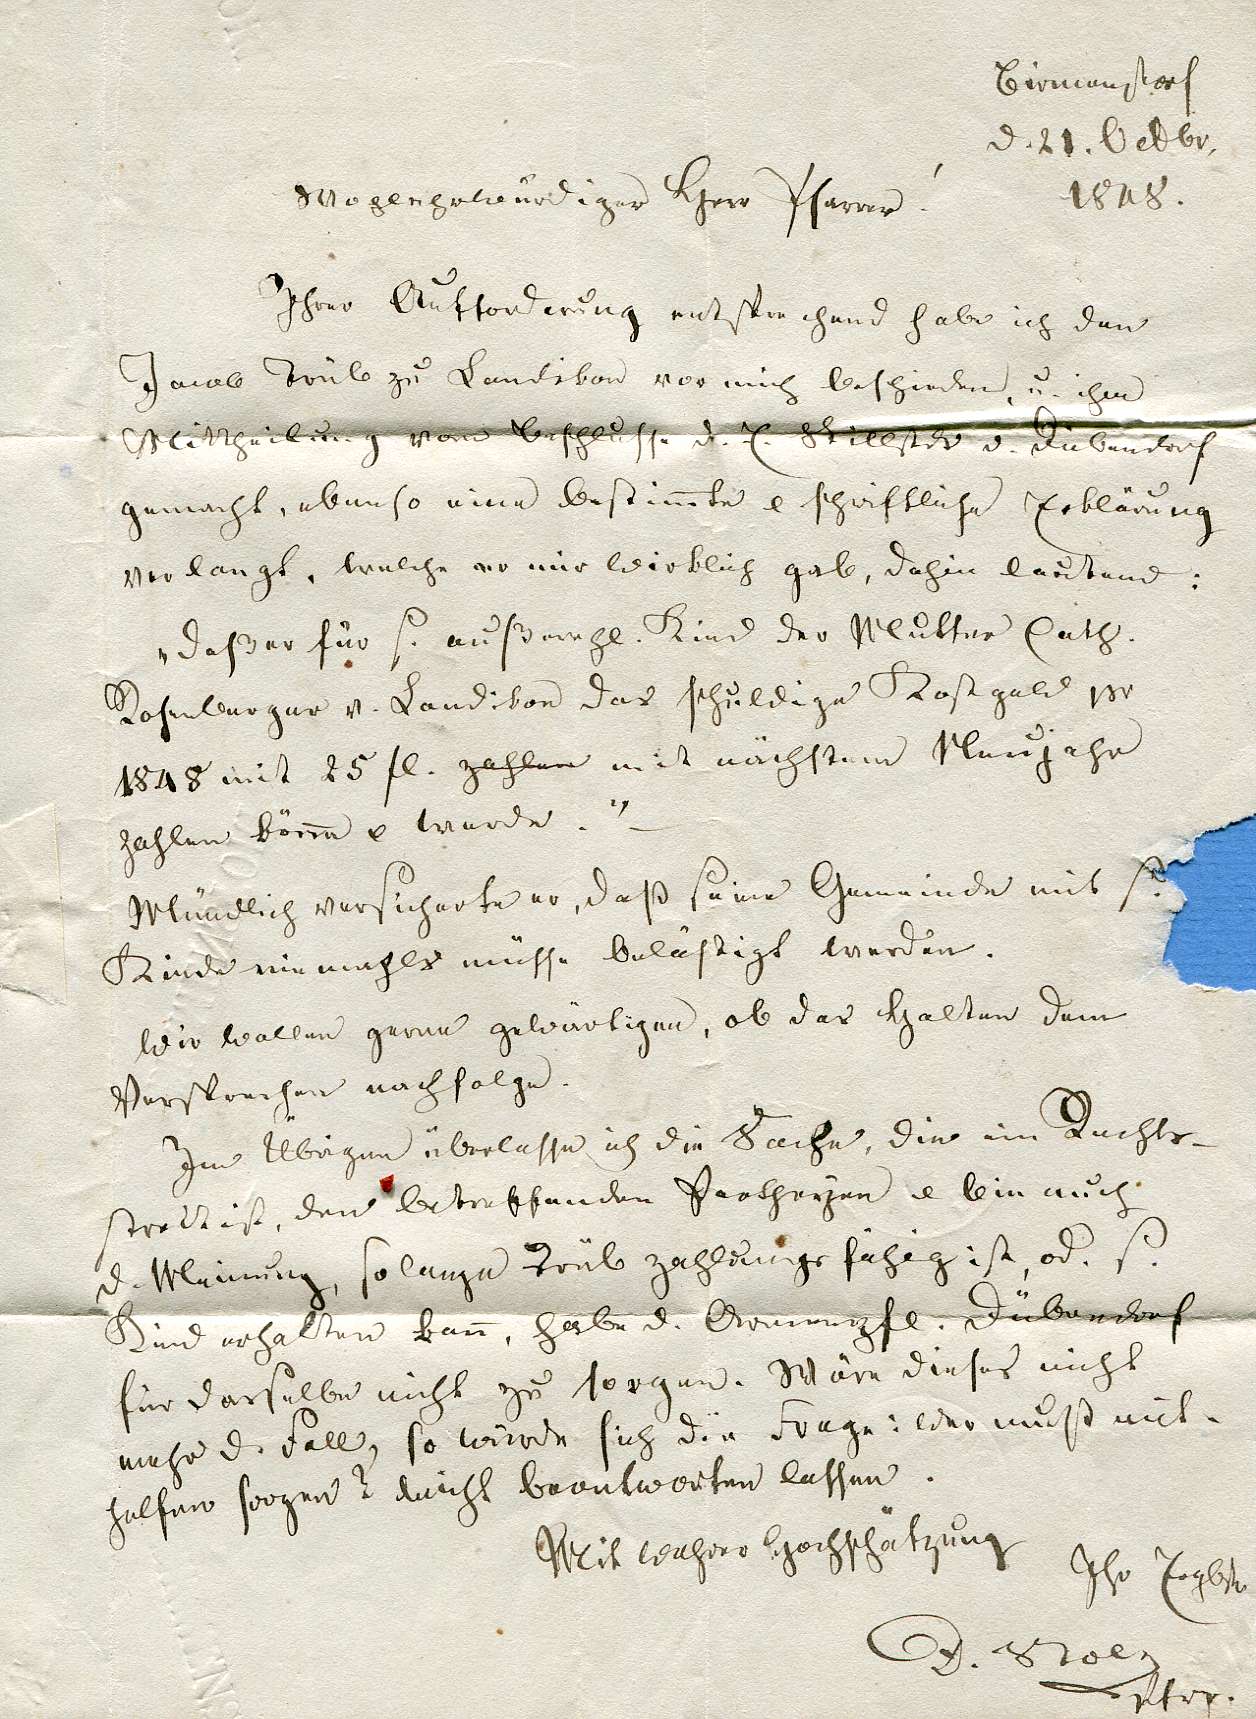 Birmenstorf
d. 21. Octbr.
1848.
Wohlehrwürdiger Herr Pfarrer!
Ihrer Aufforderung entsprechend habe ich den
Jacob Trüb zu Landikon vor mich beschieden, u. ihm
Mittheilung vom Beschlusse d. E. Stillstds v. Dübendorf
gemacht, ebenso eine bestimte & schriftliche Erklärung
verlangt, welche er mir wirklich gab, dahin lautend:
„daß er für s. außerehl. Kind der Mutter Cath.
Rosenberger v. Landikon das schuldige Kostgeld pr
1848 mit 25 fl. zahlen mit nächstem Neujahr
zahlen könne & werde."
Mündlich versicherte er, daß seine Gemeinde mit s.
Kinde niemahls müsse belästigt werden.
Wir wollen gerne gewärtigen, ob das Halten dem
Versprechen nachfolge.
Im Übrigen überlasse ich die Sache, die im Rechts-
streit ist, den betreffenden Partheyen & bin auch
d. Meinung, so lange Trüb zahlungsfähig ist, od. s.
Kind erhalten kann, habe d. Armenpfl. Dübendorf
für dasselbe nicht zu sorgen. Wäre dieses nicht
mehr d. Fall, so würde sich die Frage: wer muß mit-
helfen sorgen? leicht beantworten lassen.
Mit wahrer Hochschätzung
Ihr Ergbstr
Pfrr.